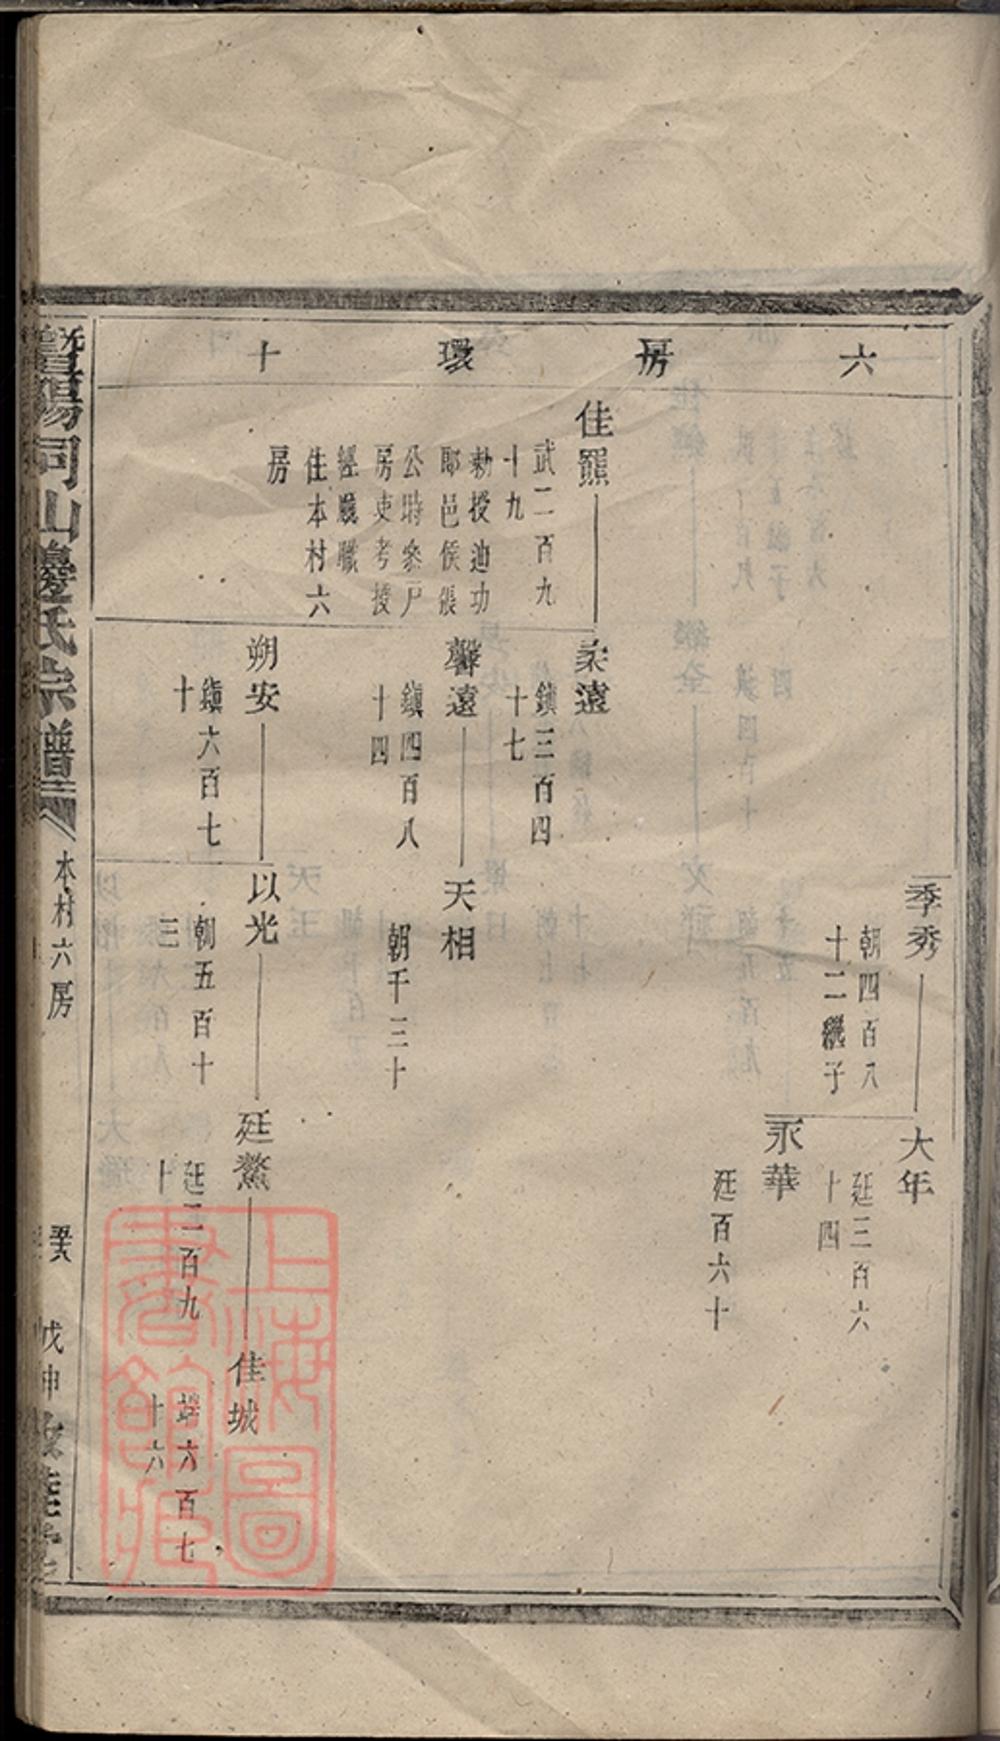 六房環十
季秀
朝四百八
十二繼子
大年
廷三百六
十四
永華
廷百六十
佳羆
武二百九
十九
勅授迪功
郎邑侯張
公時叅戸
房吏考授
經職
住本村六
房
柔遠
鎮三百四
十七
馨遠
鎮四百八
十四
天相
朝千三十
朔安
鎮六百七
十
以光
朝五百十
三
廷鰲
廷二百九
十
佳城
六百七
十六
暨陽同山邊氏宗譜
本村六房
戊申
上海圖
書館藏